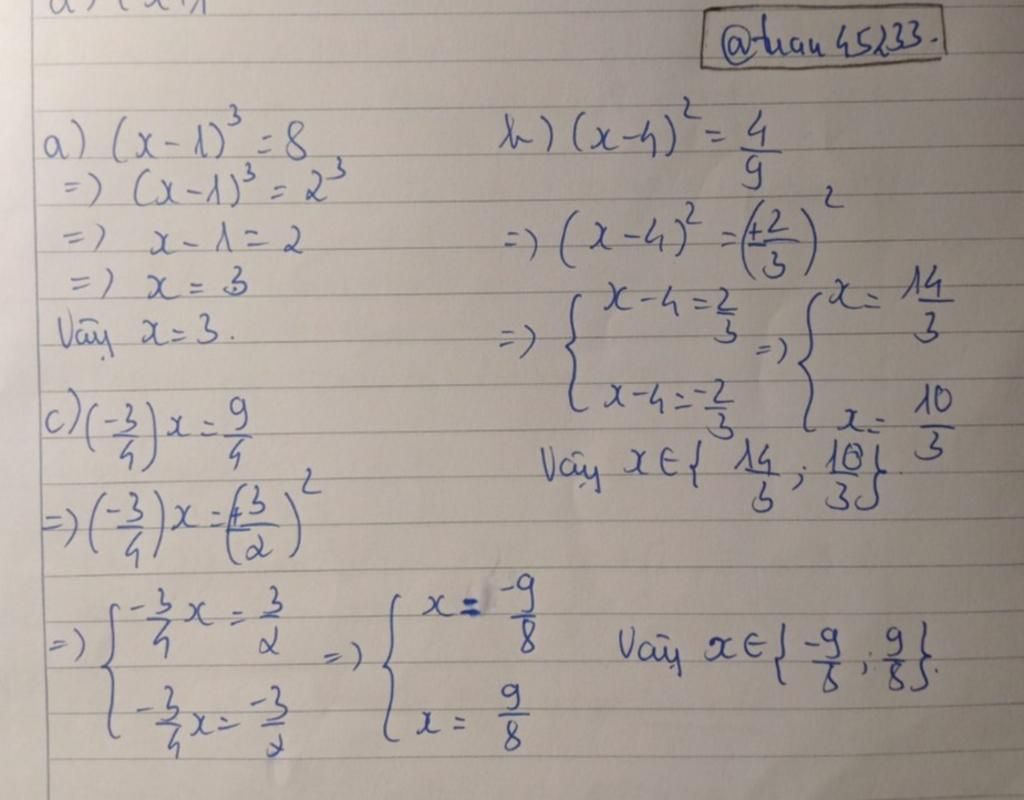 @tuan45233.
a) (x-1)³ = 8
=) (x-1)³ = 2³
=) x-1 = 2
=) x = 3
Vậy x = 3.
b) (x-4)² = 4/9
=) (x-4)² = (±2/3)²
=) { x-4 = 2/3 =) { x = 14/3
x-4 = -2/3 x = 10/3
Vậy x ∈ { 14/3 ; 10/3 }.
c) (-3/4) x = 9/4
=) (-3/4) x = (±3/2)²
=) { -3/4 x = 3/2 =) { x = -9/8
-3/4 x = -3/2 x = 9/8
Vậy x ∈ { -9/8 ; 9/8 }.